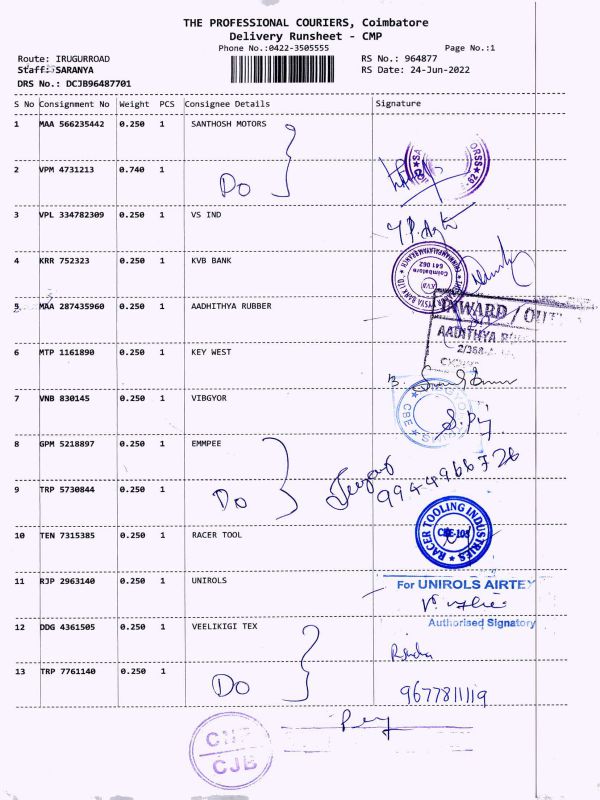 THE PROFESSIONAL COURIERS, Coimbatore
Delivery Runsheet - CMP
Phone No.:0422-3505555
Page No.:1
Route: IRUGURROAD
RS No.: 964877
Staff: SARANYA
RS Date: 24-Jun-2022
DRS No.: DCJB96487701
S No Consignment No Weight PCS Consignee Details Signature
1 MAA 566235442 0.250 1 SANTHOSH MOTORS
2 VPM 4731213 0.740 1 Do
3 VPL 334782309 0.250 1 VS IND
4 KRR 752323 0.250 1 KVB BANK
Coimbatore
641 062
KVB
5 MAA 287435960 0.250 1 AADHITHYA RUBBER
INWARD / OUT
AADITHYA
6 MTP 1161890 0.250 1 KEY WEST
7 VNB 830145 0.250 1 VIBGYOR
CBE
8 GPM 5218897 0.250 1 EMMPEE
9944966726
9 TRP 5730844 0.250 1 Do
10 TEN 7315385 0.250 1 RACER TOOL
RACER TOOLING INDUSTRIES
CBE-103
11 RJP 2963140 0.250 1 UNIROLS
For UNIROLS AIRTE
Authorised Signatory
12 DDG 4361505 0.250 1 VEELIKIGI TEX
13 TRP 7761140 0.250 1 Do
9677811119
CJB